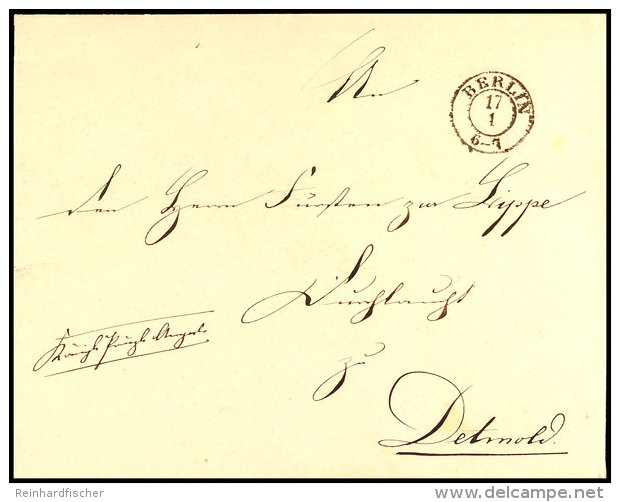 An
BERLIN
17
1
6-7
den Herrn Fürsten zur Lippe
Durchlaucht
Königl. Prinzl. Angel.
zu
Detmold.
Reinhardfischer
delcampe.net